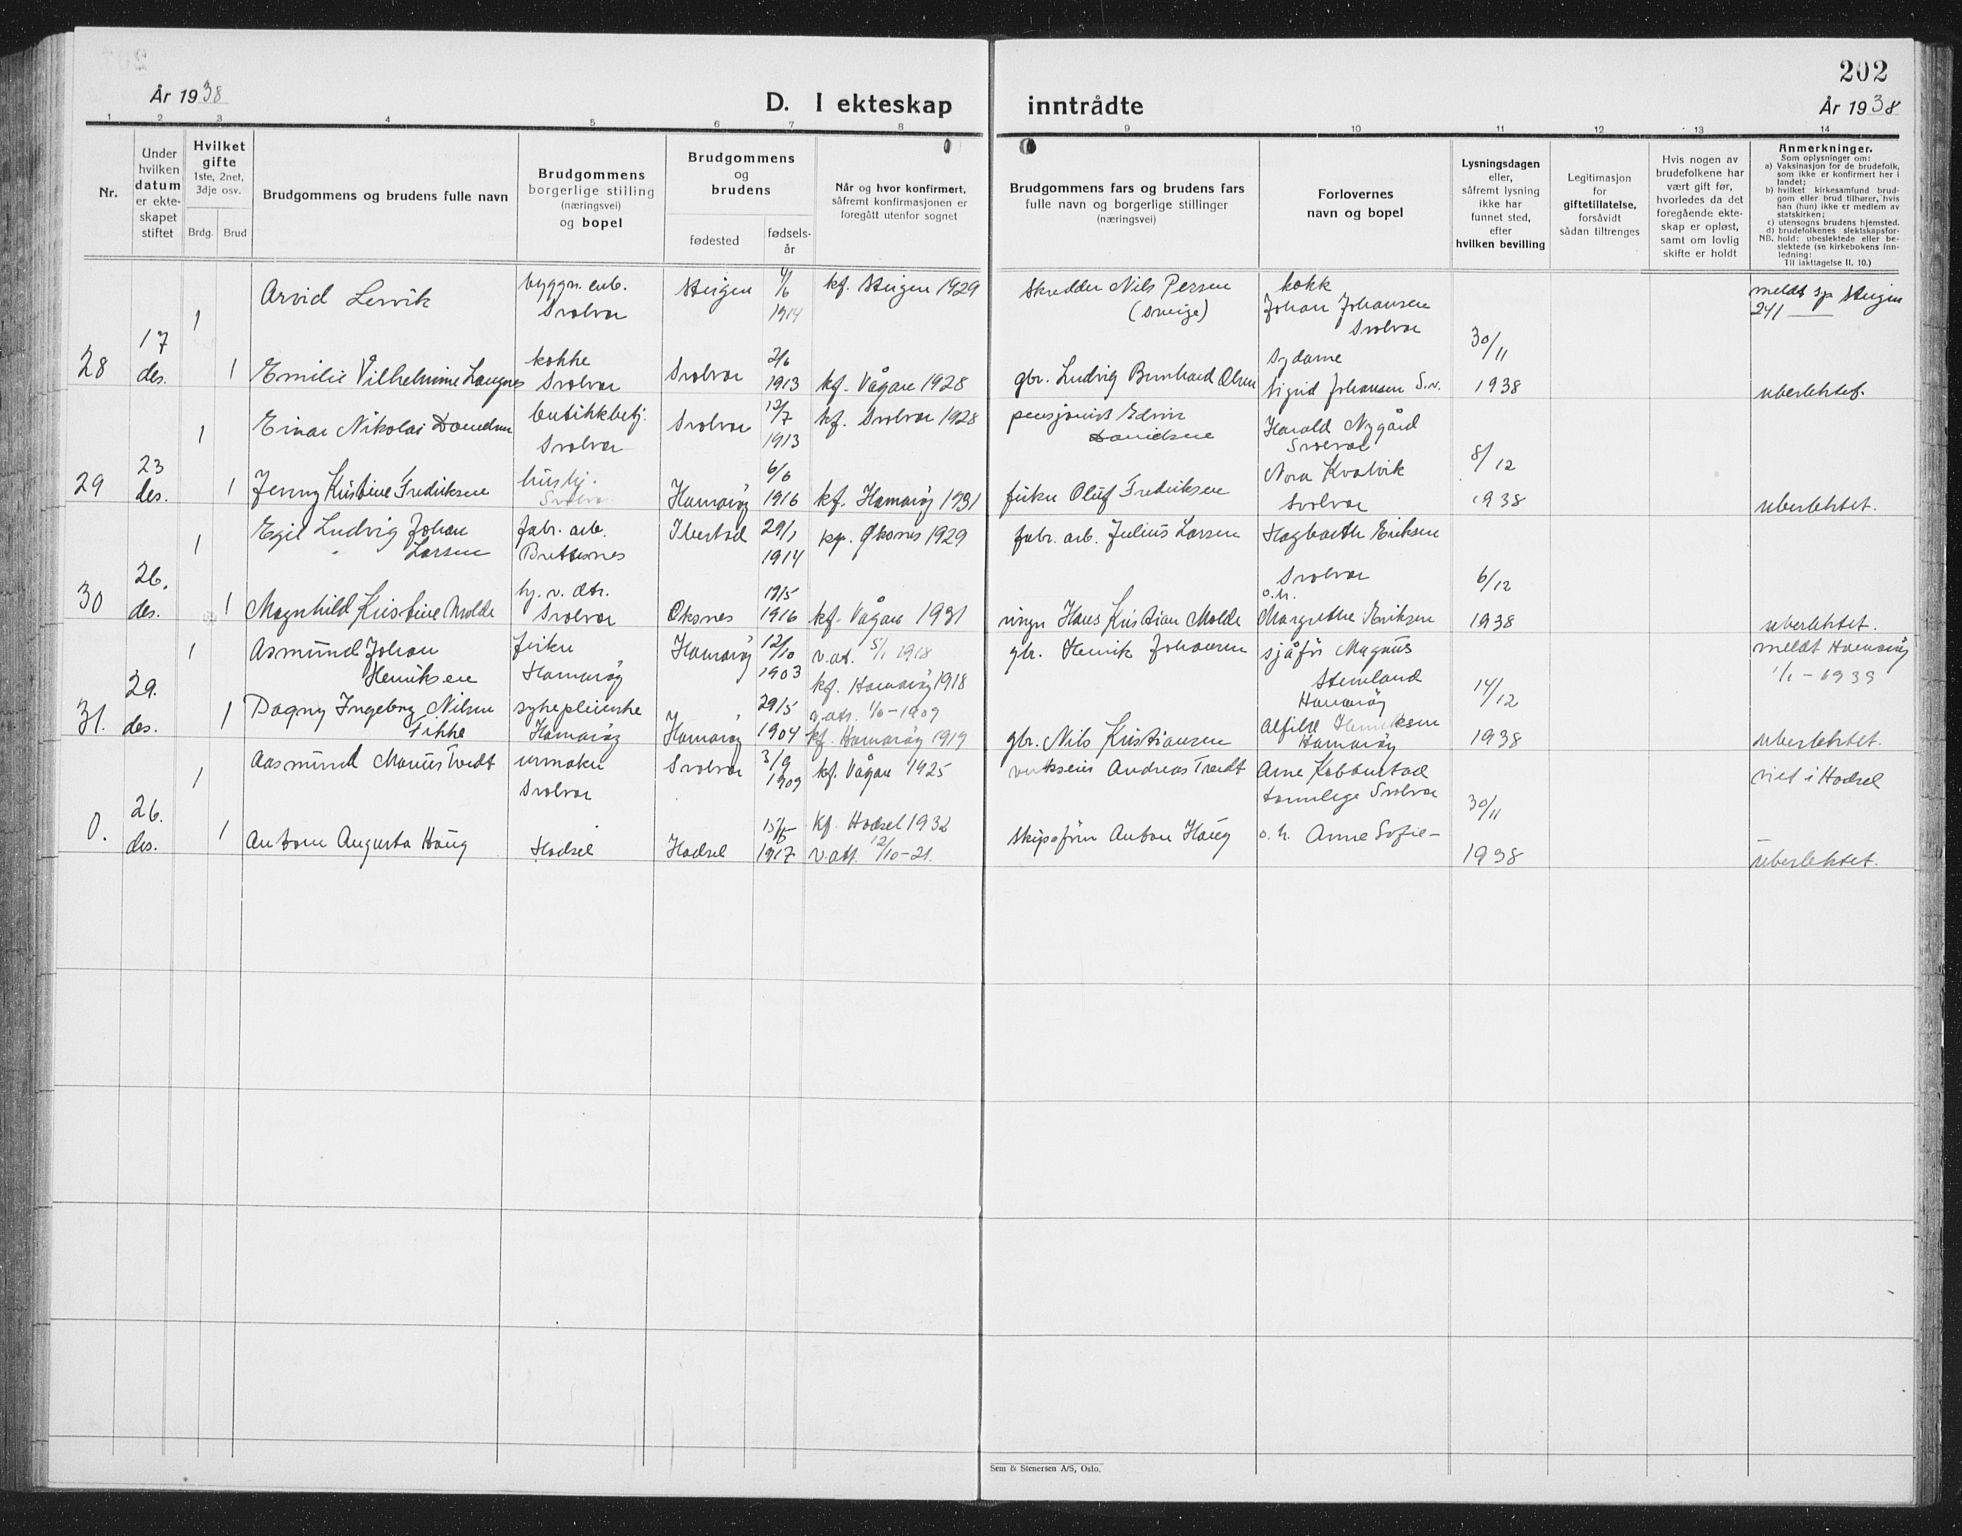 202
År 1938
D. I ekteskap inntrådte
År 1938
1 2 3 4 5 6 7 8 9 10 11 12 13 14
Nr.
Under hvilken datum er ekteskapet stiftet
Hvilket gifte
1ste, 2net, 3dje osv.
Brdg. Brud
Brudgommens og brudens fulle navn
Brudgommens borgerlige stilling (næringsvei) og bopel
Brudgommens og brudens
fødested
fødselsår
Når og hvor konfirmert, såfremt konfirmasjonen er foregått utenfor sognet
Brudgommens fars og brudens fars fulle navn og borgerlige stillinger (næringsvei)
Forlovernes navn og bopel
Lysningsdagen eller, såfremt lysning ikke har funnet sted, efter hvilken bevilling
Legitimasjon for giftetillatelse, forsåvidt sådan tiltrenges
Hvis nogen av brudefolkene har vært gift før, hvorledes da det foregående ekteskap er opløst, samt om lovlig skifte er holdt
Anmerkninger.
Som oplysninger om:
a) Vaksinasjon for de brudefolk, som ikke er konfirmert her i landet;
b) hvilket kirkesamfund brudgom eller brud tilhører, hvis han (hun) ikke er medlem av statskirken;
c) utensogns brudens hjemsted.
d) brudefolkenes slektskapsforhold: ubeslektede eller beslektede (se kirkebokens innledning:
NB. Til iakttagelse II. 10.)
28 17 des.
1 Arvid Lervik byggn. arb. Svolvær Steigen 4/6 1914 kf. Steigen 1929 Skredder Nils Persen (Sverige) kokk Johan Johansen Svolvær 30/11 1938 meldt sp Steigen 24/1
1 Emilie Vilhelmine Langnes kokke Svolvær Svolvær 2/6 1913 kf. Vågan 1928 gbr. Ludvig Bernhard Olsen Sydame Sigrid Johansen S.v. ubeslektet.
29 23 des.
1 Einar Nikolai Danielsen butikkbetj. Svolvær Svolvær 12/7 1913 kf. Svolvær 1928 pensjonist Edvin Danielsen Harald Nygård Svolvær 8/12 1938
1 Jenny Kristine Fredriksen hushj. Svolvær Hamarøy 6/6 1916 kf. Hamarøy 1931 fisker Oluf Fredriksen Nora Kvalvik Svolvær ubeslektet.
30 26. des.
1 Egil Ludvig Johan Larsen fabr. arb. Brettesnes Ibestad 29/1 1914 kf. Øksnes 1929 fabr. arb. Julius Larsen Hagbarth Eriksen Svolvær 6/12 1938
1 Magnhild Kristine Molde hj. v. dtr. Svolvær Øksnes 19/5 1916 kf. Vågan 1931 Hans Kristian Molde o.h. Margrethe Eriksen ubeslektet.
31. 29. des.
1 Asmund Johan Henriksen fisker Hamarøy Hamarøy 12/10 1903 v.at. 5/1 1918 kf. Hamarøy 1918 gbr. Henrik Johansen sjåfør Magnus Steinland Hamarøy 14/12 1938 meldt Hamarøy 1/1 - 1939
1 Dagny Ingeborg Nilsen Fikke sykepleierske Hamarøy Hamarøy 29/5 1904 v.att. 1/6 - 1909 kf. Hamarøy 1919 gbr. Nils Kristiansen Alfild Henriksen Hamarøy ubeslektet.
0. 26. des.
1 Aasmund Marius Tvedt urmaker Svolvær Svolvær 3/9 1909 kf. Vågan 1925 Andreas Tvedt Arne Kabbestad tannlege Svolvær 30/11 1938 viet i Hadsel
1 Antonie Augusta Haug Hadsel Hadsel 15/5 1917 kf. Hadsel 1932 v.att. 12/10 - 21. Skipsfører Anton Haug o.h. Anne Sofie - ubeslektet.
Sem & Stenersen A/S, Oslo.